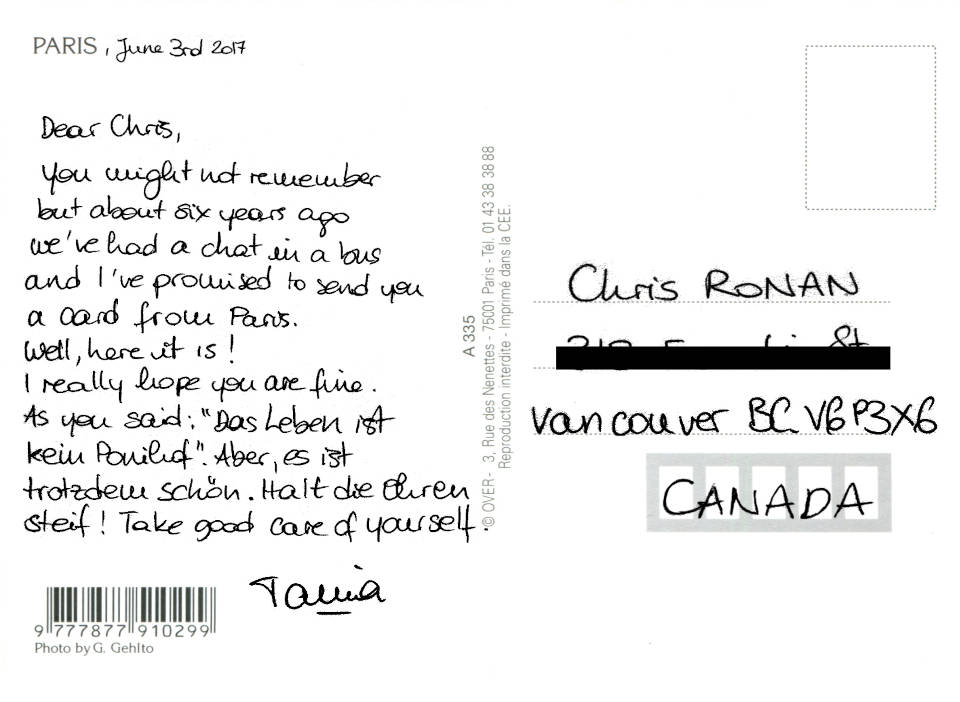 PARIS, June 3rd 2017
Dear Chris,
You might not remember
but about six years ago
we've had a chat in a bus
and I've promised to send you
a card from Paris.
Well, here it is!
I really hope you are fine.
As you said: "Das Leben ist
kein Ponihof". Aber, es ist
trotzdem schön. Halt die Ohren
steif! Take good care of yourself.
Tania
9 777877 910299
Photo by G. Gehlto
A 335
© OVER - 3, Rue des Nenettes - 75001 Paris - Tél. 01 43 38 38 88
Reproduction interdite - Imprimé dans la CEE.
Chris RONAN
St
Vancouver BC V6P3X6
CANADA